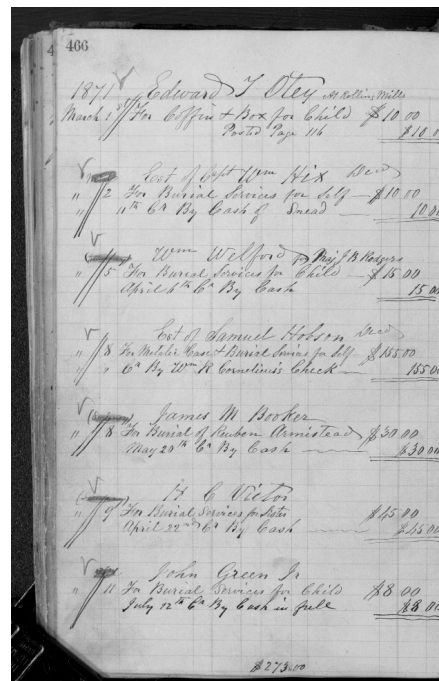 466
1871 Edward T Otey At Rolling Mills
March 1st For Coffin & Box for Child $10.00
Posted Page 116 $10.0
Est of Capt Wm Hix Decd
" 2 For Burial Services for Self — $10.00
" " 11th Cr By Cash of Snead — 10.00
Wm Welford Maj J B Rodgers
" 5 For Burial Services for Child — $15.00
April 4th Cr By Cash 15.00
Est of Samuel Hobson Decd
" 8 For Metalic Case & Burial Services for Self — $155.00
" " Cr By Wm R Cornelius's Check — 155.00
James M Booker
" 8 For Burial of Reuben Armistead $30.00
May 24th Cr By Cash — $30.00
H C Victor
" 9 For Burial Services for Sister $45.00
April 22nd Cr By Cash — $45.00
John Green Jr
" 11 For Burial Services for Child $8.00
July 12th Cr By Cash in full $8.00
$273.00